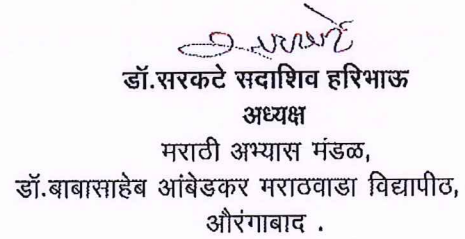 डॉ.सरकटे सदाशिव हरिभाऊ
अध्यक्ष
मराठी अभ्यास मंडळ,
डॉ.बाबासाहेब आंबेडकर मराठवाडा विद्यापीठ,
औरंगाबाद .